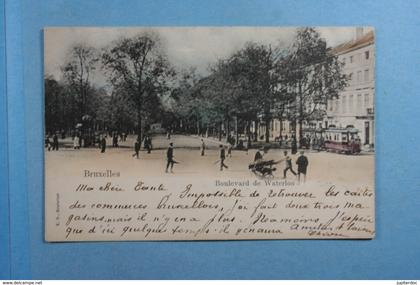 Bruxelles
Boulevard de Waterloo
Ma chère Tante Impossible de retrouver les cartes
des communes bruxelloises, j'en fait deux trois ma
gasins, mais il n'y en a plus. Néanmoins, j'espère
que d'ici quelque temps il y en aura
jupiterdoc